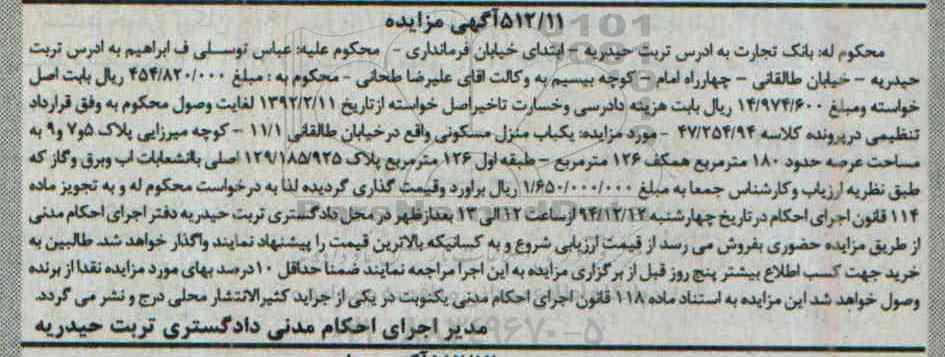 ۵۱۲/۱۱آگهی مزایده
محکوم له: بانک تجارت به ادرس تربت حیدریه - ابتدای خیابان فرمانداری - محکوم علیه: عباس توسلی ف ابراهیم به ادرس تربت
حیدریه - خیابان طالقانی - چهارراه امام - کوچه بیسیم به وکالت اقای علیرضا طحانی - محکوم به : مبلغ ۴۵۴/۸۲۰/۰۰۰ ریال بابت اصل
خواسته ومبلغ ۱۴/۹۷۴/۶۰۰ ریال بابت هزینه دادرسی وخسارت تاخیراصل خواسته ازتاریخ ۱۳۹۲/۲/۱۱ لغایت وصول محکوم به وفق قرارداد
تنظیمی درپرونده کلاسه ۴۷/۲۵۴/۹۴ - مورد مزایده: یکباب منزل مسکونی واقع درخیابان طالقانی ۱۱/۱ - کوچه میرزایی پلاک ۵و۷ و۹ به
مساحت عرصه حدود ۱۸۰ مترمربع همکف ۱۲۶ مترمربع - طبقه اول ۱۲۶ مترمربع پلاک ۱۲۹/۱۸۵/۹۲۵ اصلی باانشعابات اب وبرق وگاز که
طبق نظریه ارزیاب وکارشناس جمعا به مبلغ ۱/۶۵۰/۰۰۰/۰۰۰ ریال براورد وقیمت گذاری گردیده لذا به درخواست محکوم له و به تجویز ماده
۱۱۴ قانون اجرای احکام در تاریخ چهارشنبه ۹۴/۱۲/۱۲ ازساعت ۱۲ الی ۱۳ بعدازظهر در محل دادگستری تربت حیدریه دفتر اجرای احکام مدنی
از طریق مزایده حضوری بفروش می رسد از قیمت ارزیابی شروع و به کسانیکه بالاترین قیمت را پیشنهاد نمایند واگذار خواهد شد. طالبین به
خرید جهت کسب اطلاع بیشتر پنج روز قبل از برگزاری مزایده به این اجرا مراجعه نمایند ضمنا حداقل ۱۰درصد بهای مورد مزایده نقدا از برنده
وصول خواهد شد این مزایده به استناد ماده ۱۱۸ قانون اجرای احکام مدنی یکنوبت در یکی از جراید کثیرالانتشار محلی درج و نشر می گردد.
مدیر اجرای احکام مدنی دادگستری تربت حیدریه